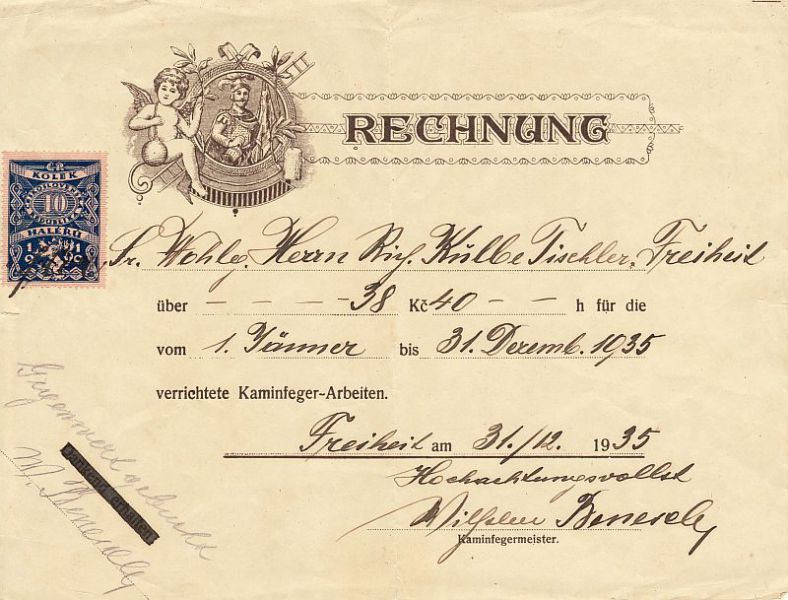 RECHNUNG
KOLEK
10
HALÉŘŮ
Sr. Wohlg. Herrn Rich. Kulbe Tischler, Freiheit
über – – – – 38 Kč 40 – – h für die
vom 1. Jänner bis 31. Dezemb. 1935
verrichtete Kaminfeger-Arbeiten.
Freiheit am 31./12. 1935
Hochachtungsvollst
Wilhelm Benesch
Kaminfegermeister.
Gegenwert gebucht
dankend erhalten
W. Benesch